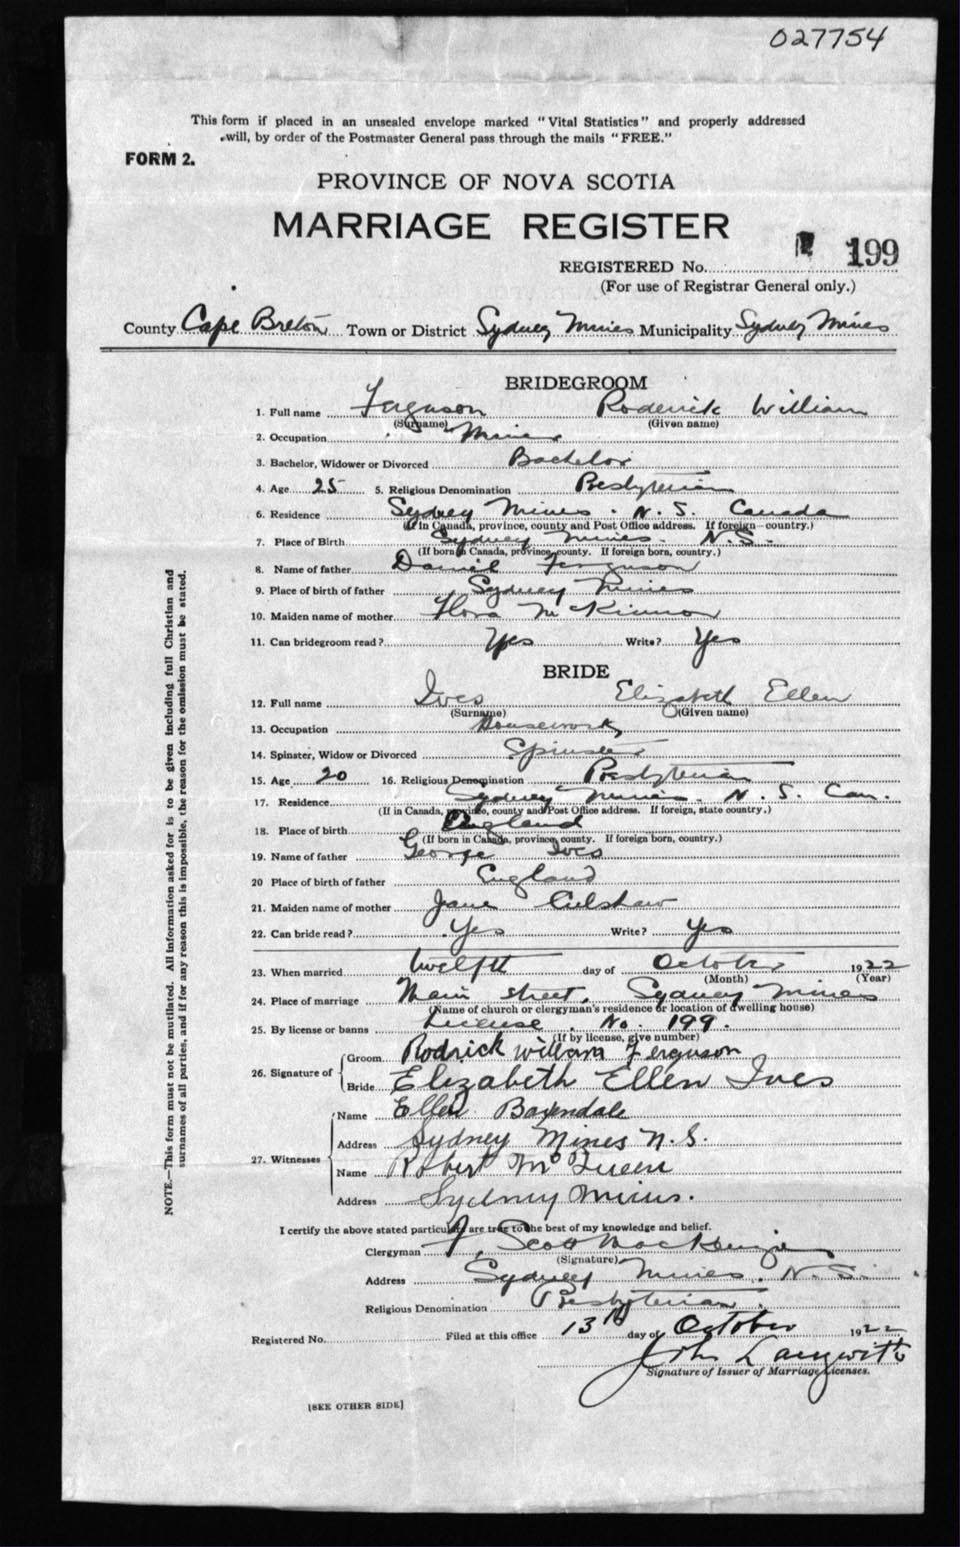 027754
This form if placed in an unsealed envelope marked "Vital Statistics" and properly addressed
will, by order of the Postmaster General pass through the mails "FREE."
FORM 2.
PROVINCE OF NOVA SCOTIA
MARRIAGE REGISTER
REGISTERED No. 199
(For use of Registrar General only.)
County Cape Breton Town or District Sydney Mines Municipality Sydney Mines
BRIDEGROOM
1. Full name Ferguson Roderick William
(Surname) (Given name)
2. Occupation Miner
3. Bachelor, Widower or Divorced Bachelor
4. Age 25 5. Religious Denomination Presbyterian
6. Residence Sydney Mines. N. S. Canada
(If in Canada, province, county and Post Office address. If foreign—country.)
7. Place of Birth Sydney Mines. N.S.
(If born in Canada, province, county. If foreign born, country.)
8. Name of father Daniel Ferguson
9. Place of birth of father Sydney Mines
10. Maiden name of mother Flora McKinnon
11. Can bridegroom read? Yes Write? Yes
BRIDE
12. Full name Ives Elizabeth Ellen
(Surname) (Given name)
13. Occupation Housework
14. Spinster, Widow or Divorced Spinster
15. Age 20 16. Religious Denomination Presbyterian
17. Residence Sydney Mines. N. S. Can.
(If in Canada, province, county and Post Office address. If foreign, state country.)
18. Place of birth England
(If born in Canada, province, county. If foreign born, country.)
19. Name of father George Ives
20 Place of birth of father England
21. Maiden name of mother Jane Culshaw
22. Can bride read? Yes Write? Yes
23. When married twelfth day of October 1922
(Month) (Year)
24. Place of marriage Main street, Sydney Mines
(Name of church or clergyman's residence or location of dwelling house)
25. By license or banns License. No. 199.
(If by license, give number)
26. Signature of Groom Rodrick william Ferguson
Bride Elizabeth Ellen Ives
27. Witnesses Name Ellen Baxendale
Address Sydney Mines N.S.
Name Robert McQueen
Address Sydney Mines.
I certify the above stated particulars are true to the best of my knowledge and belief.
Clergyman J. Scott MacKenzie
(Signature)
Address Sydney Mines. N.S.
Religious Denomination Presbyterian.
Registered No. Filed at this office 13th day of October 1922
John Langwith
Signature of Issuer of Marriage Licenses.
[SEE OTHER SIDE]
NOTE.—This form must not be mutilated. All information asked for is to be given including full Christian and
surnames of all parties, and if for any reason this is impossible, the reason for the omission must be stated.